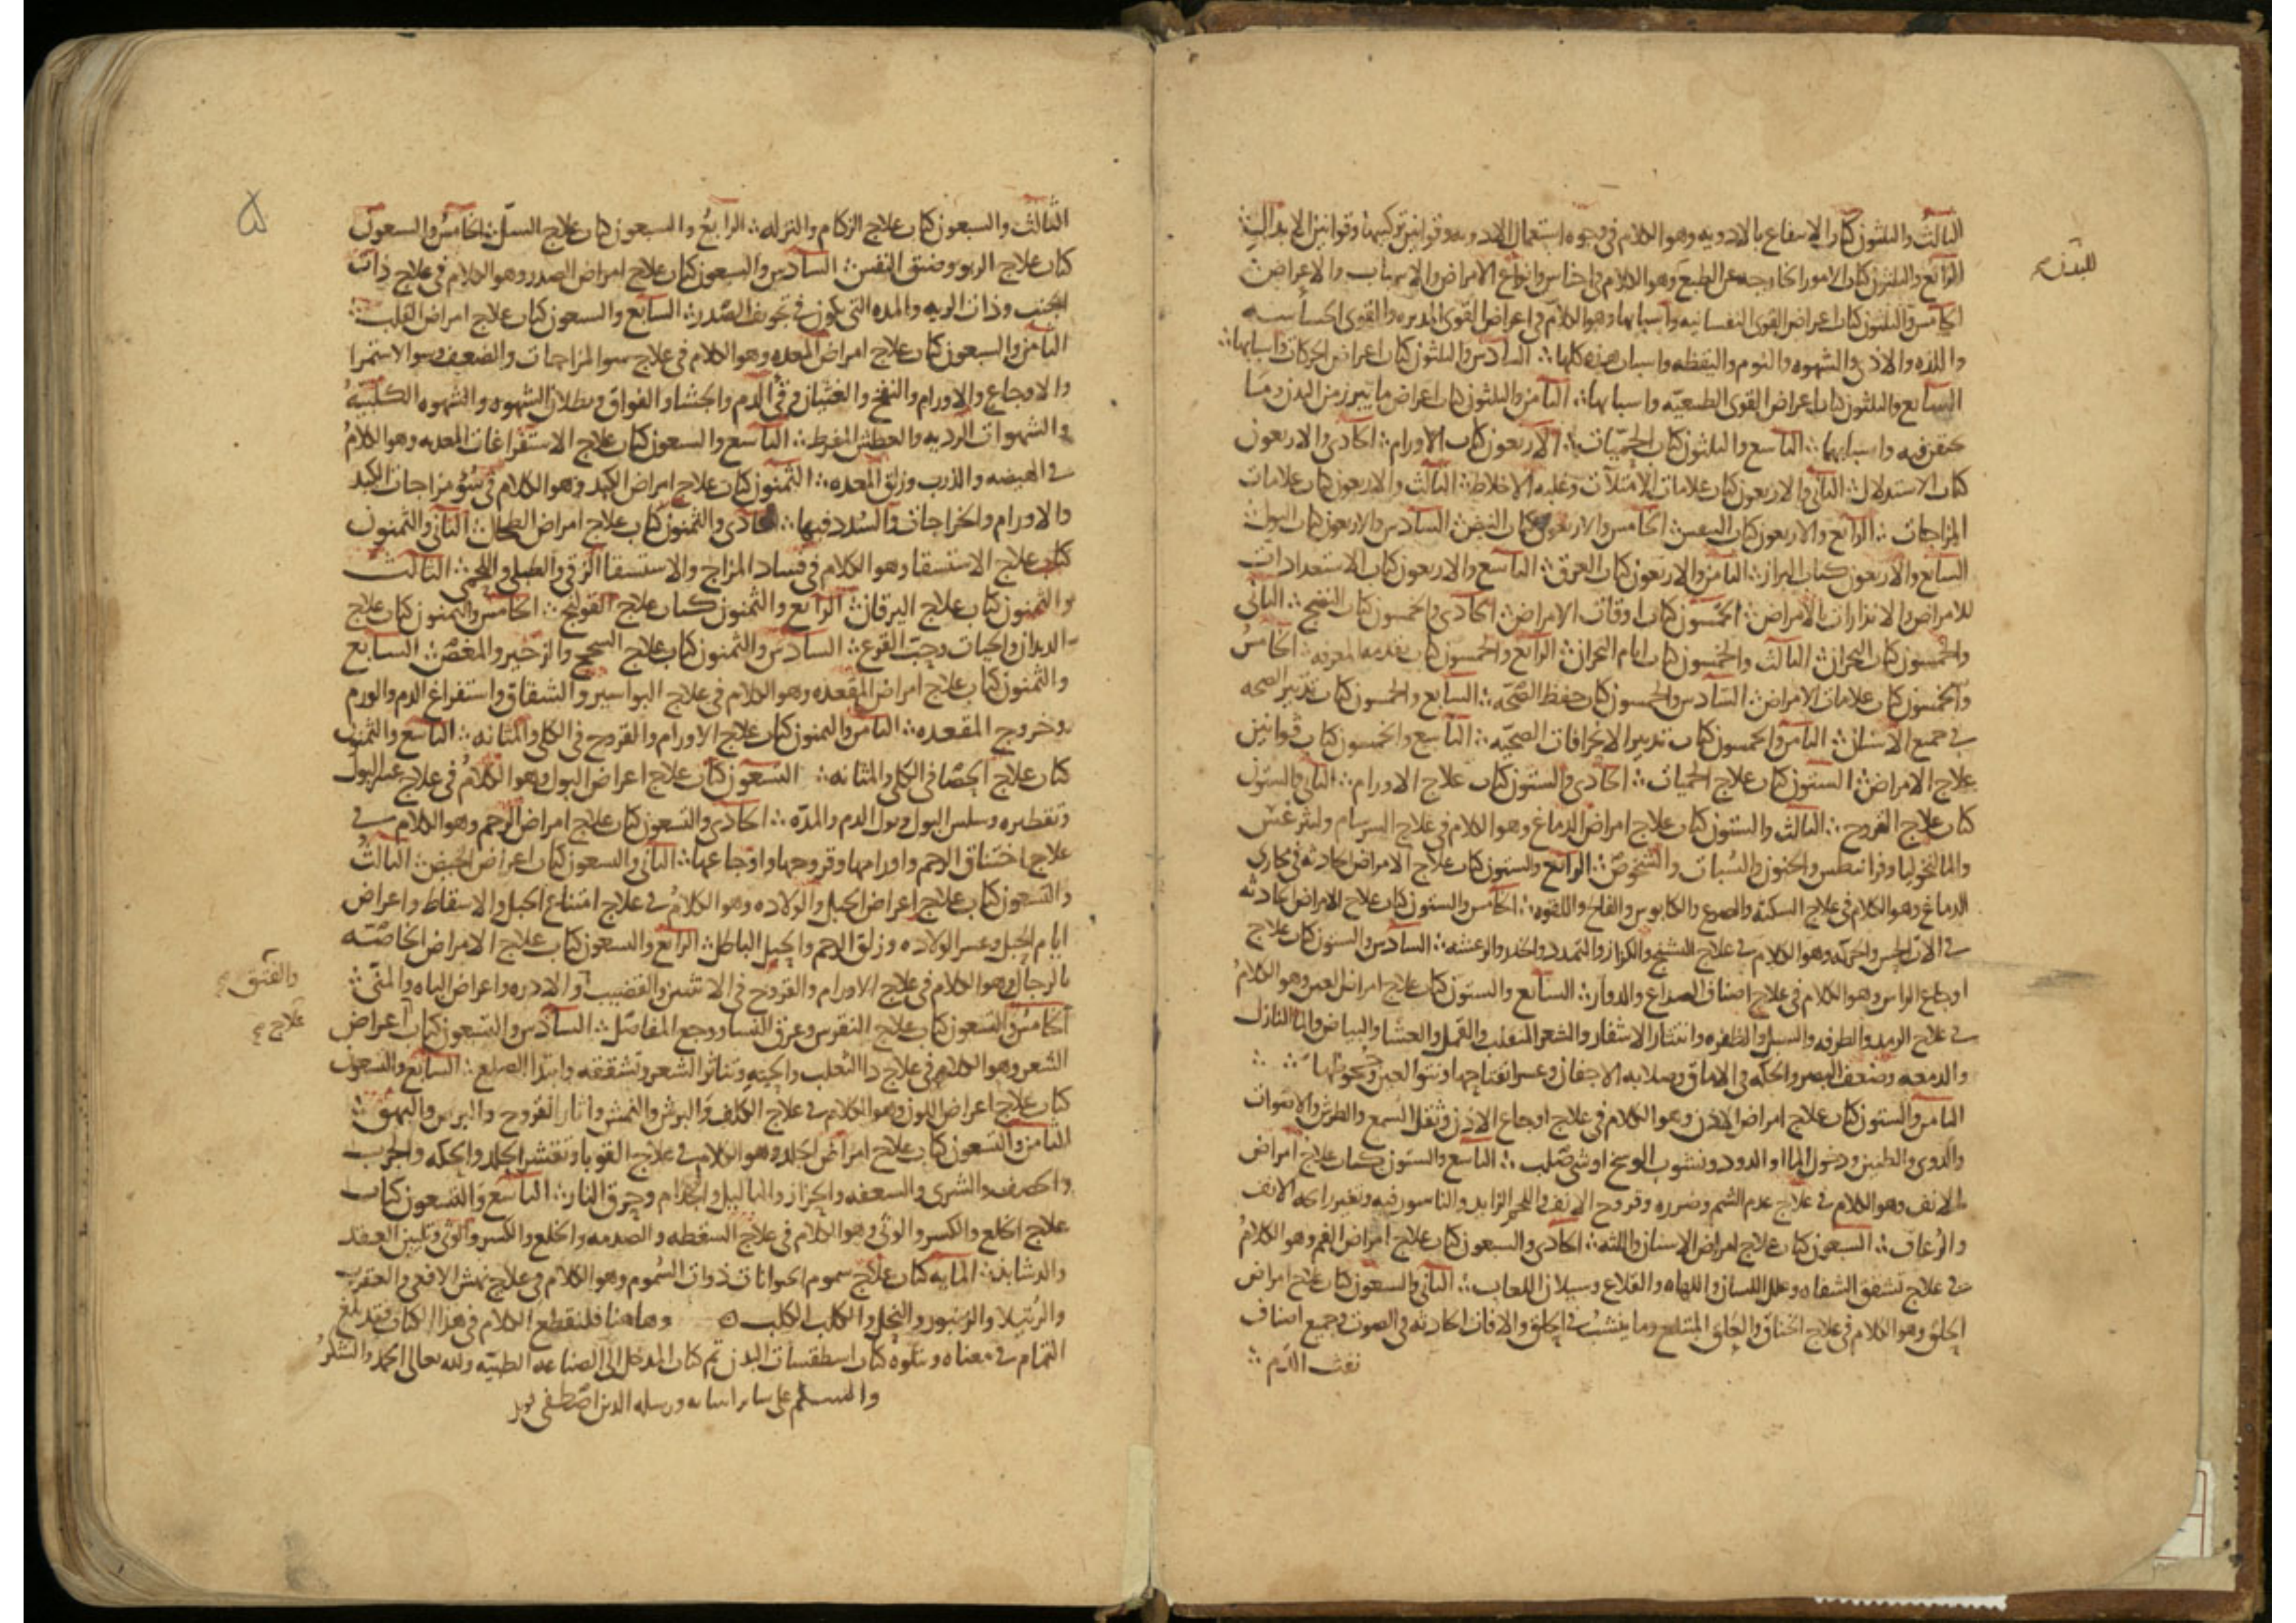 الثالث والثلثون كتاب الانتفاع بالادويه وهو الكلام في وجوه استعمال الادويه وقوانين تركيبها وقوانين الابدال ∴
للبدن
الرابع والثلثون كتاب الامور الخارجه عن الطبع وهو الكلام في اجناس وانواع الامراض والاسباب والاعراض
الخامس والثلثون كتاب اعراض القوى النفسانيه واسبابها وهو الكلام في اعراض القوى المدبره والقوى الحساسه
واللذه والاذى والشهوه والنوم واليقظه واسباب هذه كلها ∴ السادس والثلثون كتاب اعراض الحركات واسبابها ∴
السابع والثلثون كتاب اعراض القوى الطبيعيه واسبابها ∴ الثامن والثلثون كتاب اعراض ما يبرز من البدن وما
يحتقن فيه واسبابهما ∴ التاسع والثلثون كتاب الحميات ∴ الاربعون كتاب الاورام ∴ الحادى والاربعون
كتاب الاستدلال ∴ الثاني والاربعون كتاب علامات الامتلآت وغلبه الاخلاط ∴ الثالث والاربعون كتاب علامات
المزاجات ∴ الرابع والاربعون كتاب التنفس ∴ الخامس والاربعون كتاب النبض ∴ السادس والاربعون كتاب البول ∴
السابع والاربعون كتاب البراز ∴ الثامن والاربعون كتاب العرق ∴ التاسع والاربعون كتاب الاستعدادات
للامراض والانذارات بالامراض ∴ الخمسون كتاب اوقات الامراض ∴ الحادى والخمسون كتاب النضج ∴ الثاني
والخمسون كتاب البحران ∴ الثالث والخمسون كتاب ايام البحران ∴ الرابع والخمسون كتاب تقدمه المعرفه ∴ الخامس
والخمسون كتاب علامات الامراض ∴ السادس والخمسون كتاب حفظ الصحه ∴ السابع والخمسون كتاب تدبير الصحه
في جميع الاسنان ∴ الثامن والخمسون كتاب تدبير الانحرافات الصحيه ∴ التاسع والخمسون كتاب قوانين
علاج الامراض ∴ الستون كتاب علاج الحميات ∴ الحادى والستون كتاب علاج الاورام ∴ الثاني والستون
كتاب علاج القروح ∴ الثالث والستون كتاب علاج امراض الدماغ وهو الكلام في علاج السرسام وليثرغس
والمالنخوليا وفرانيطس والجنون والسبات والشخوص ∴ الرابع والستون كتاب علاج الامراض الحادثه في مجارى
الدماغ وهو الكلام في علاج السكته والصرع والكابوس والفالج واللقوه ∴ الخامس والستون كتاب علاج الامراض الحادثه
في الات الحس والحركه وهو الكلام في علاج التشنج والكزاز والتمدد والخدر والرعشه ∴ السادس والستون كتاب علاج
اوجاع الراس وهو الكلام في علاج اصناف الصداع والدوار ∴ السابع والستون كتاب علاج امراض العين وهو الكلام
في علاج الرمد والطرفه والسبل والظفره وانتثار الاشفار والشعر المنقلب والقمل والعشا والبياض والما النازل
والدمعه وضعف البصر والحكه في الاماق وصلابه الاجفان وعسر انفتاحها ونتو العين وجحوظها ∴ ∴
الثامن والستون كتاب علاج امراض الاذن وهو الكلام في علاج اوجاع الاذن وثقل السمع والطرش والاصوات
والدوى والطنين ودخول الما او الدود ونشوب الوسخ او شى صلب ∴ التاسع والستون كتاب علاج امراض
الانف وهو الكلام في علاج عدم الشم وضرره وقروح الانف واللحم الزايد والناسور فيه وتغير رائحه الانف
والرعاف ∴ السبعون كتاب علاج امراض الاسنان واللثه ∴ الحادى والسبعون كتاب علاج امراض الفم وهو الكلام
في علاج تشقق الشفاه وعلل اللسان واللهاه والقلاع وسيلان اللعاب ∴ الثاني والسبعون كتاب علاج امراض
الحلق وهو الكلام في علاج الخناق والعلق المبتلع وما ينشب في الحلق والافات الحادثه في الصوت وجميع اصناف
نفث الدم ∴
۵
الثالث والسبعون كتاب علاج الزكام والنزله ∴ الرابع والسبعون كتاب علاج السل ∴ الخامس والسبعون
كتاب علاج الربو وضيق النفس ∴ السادس والسبعون كتاب علاج امراض الصدر وهو الكلام في علاج ذات
الجنب وذات الريه والمده التي تكون في تجويف الصدر ∴ السابع والسبعون كتاب علاج امراض القلب ∴
الثامن والسبعون كتاب علاج امراض المعده وهو الكلام في علاج سو المزاجات والضعف وسو الاستمرا
والاوجاع والاورام والنفخ والغثيان وقي الدم والجشا والفواق وبطلان الشهوه والشهوه الكلبيه
والشهوات الرديه والعطش المفرط ∴ التاسع والسبعون كتاب علاج الاستفراغات المعديه وهو الكلام
في الهيضه والذرب وزلق المعده ∴ الثمنون كتاب علاج امراض الكبد وهو الكلام في سؤ مزاجات الكبد
والاورام والخراجات والسدد فيها ∴ الحادى والثمنون كتاب علاج امراض الطحال ∴ الثاني والثمنون
كتاب علاج الاستسقا وهو الكلام في فساد المزاج والاستسقا الزقي والطبلي واللحمي ∴ الثالث
والثمنون كتاب علاج اليرقان ∴ الرابع والثمنون كتاب علاج القولنج ∴ الخامس والثمنون كتاب علاج
الديدان والحيات وحب القرع ∴ السادس والثمنون كتاب علاج السحج والزحير والمغص ∴ السابع
والثمنون كتاب علاج امراض المقعده وهو الكلام في علاج البواسير والشقاق واستفراغ الدم والورم
وخروج المقعده ∴ الثامن والثمنون كتاب علاج الاورام والقروح في الكلى والمثانه ∴ التاسع والثمنون
كتاب علاج الحصا في الكلى والمثانه ∴ التسعون كتاب علاج اعراض البول وهو الكلام في علاج عسر البول
وتقطيره وسلس البول وبول الدم والمده ∴ الحادى والتسعون كتاب علاج امراض الرحم وهو الكلام في
علاج اختناق الرحم واورامها وقروحها واوجاعها ∴ الثاني والتسعون كتاب اعراض الحيض ∴ الثالث
والتسعون كتاب علاج اعراض الحبل والولاده وهو الكلام في علاج امتناع الحبل والاسقاط واعراض
ايام الحبل وعسر الولاده وزلق الرحم والحبل الباطل ∴ الرابع والتسعون كتاب علاج الامراض الخاصه
بالرجال وهو الكلام في علاج الاورام والقروح في الانثيين والقضيب والادره واعراض الباه والمني ∴
والفتق
الخامس والتسعون كتاب علاج النقرس وعرق النسا ووجع المفاصل ∴ السادس والتسعون كتاب اعراض
علاج
الشعر وهو الكلام في علاج دا الثعلب والحيه وتناثر الشعر وتشققه وابتدا الصلع ∴ السابع والتسعون
كتاب علاج اعراض اللون وهو الكلام في علاج الكلف والبرش والنمش واثار القروح والبرص والبهق ∴
الثامن والتسعون كتاب علاج امراض الجلد وهو الكلام في علاج القوبا وتقشر الجلد والحكه والجرب
والحصف والشرى والسعفه والحزاز والثاليل والجذام وحرق النار ∴ التاسع والتسعون كتاب
علاج الخلع والكسر والوثي وهو الكلام في علاج السقطه والصدمه والخلع والكسر والوثي وتليين العقد
والدشابذ ∴ المايه كتاب علاج سموم الحيوانات ذوات السموم وهو الكلام في علاج نهش الافعى والعقرب
والرتيلا والزنبور والنحل والكلب الكلب ه وهاهنا فلنقطع الكلام في هذا الكتاب فقد بلغ
التمام في معناه ويتلوه كتاب اسطقسات البدن تم كتاب المدخل الى الصناعه الطبيه ولله تعالى الحمد والشكر
والسلم على ساير انبيائه ورسله الذين اصطفى